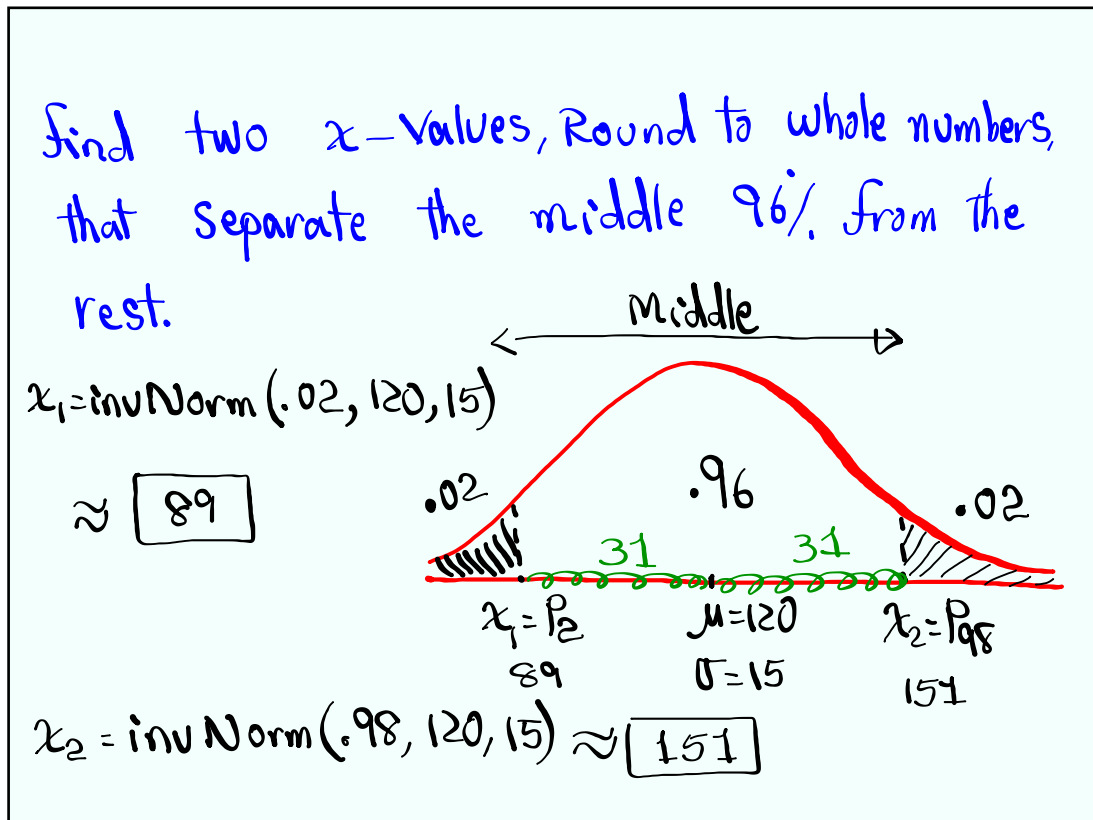 find two x-Values, Round to whole numbers,
that separate the middle 96% from the
rest.
Middle
x₁=invNorm(.02, 120, 15)
≈ 89
.02 .96 .02
31 31
x₁=P₂ μ=120 x₂=P₉₈
89 σ=15 151
x₂ = invNorm(.98, 120, 15) ≈ 151